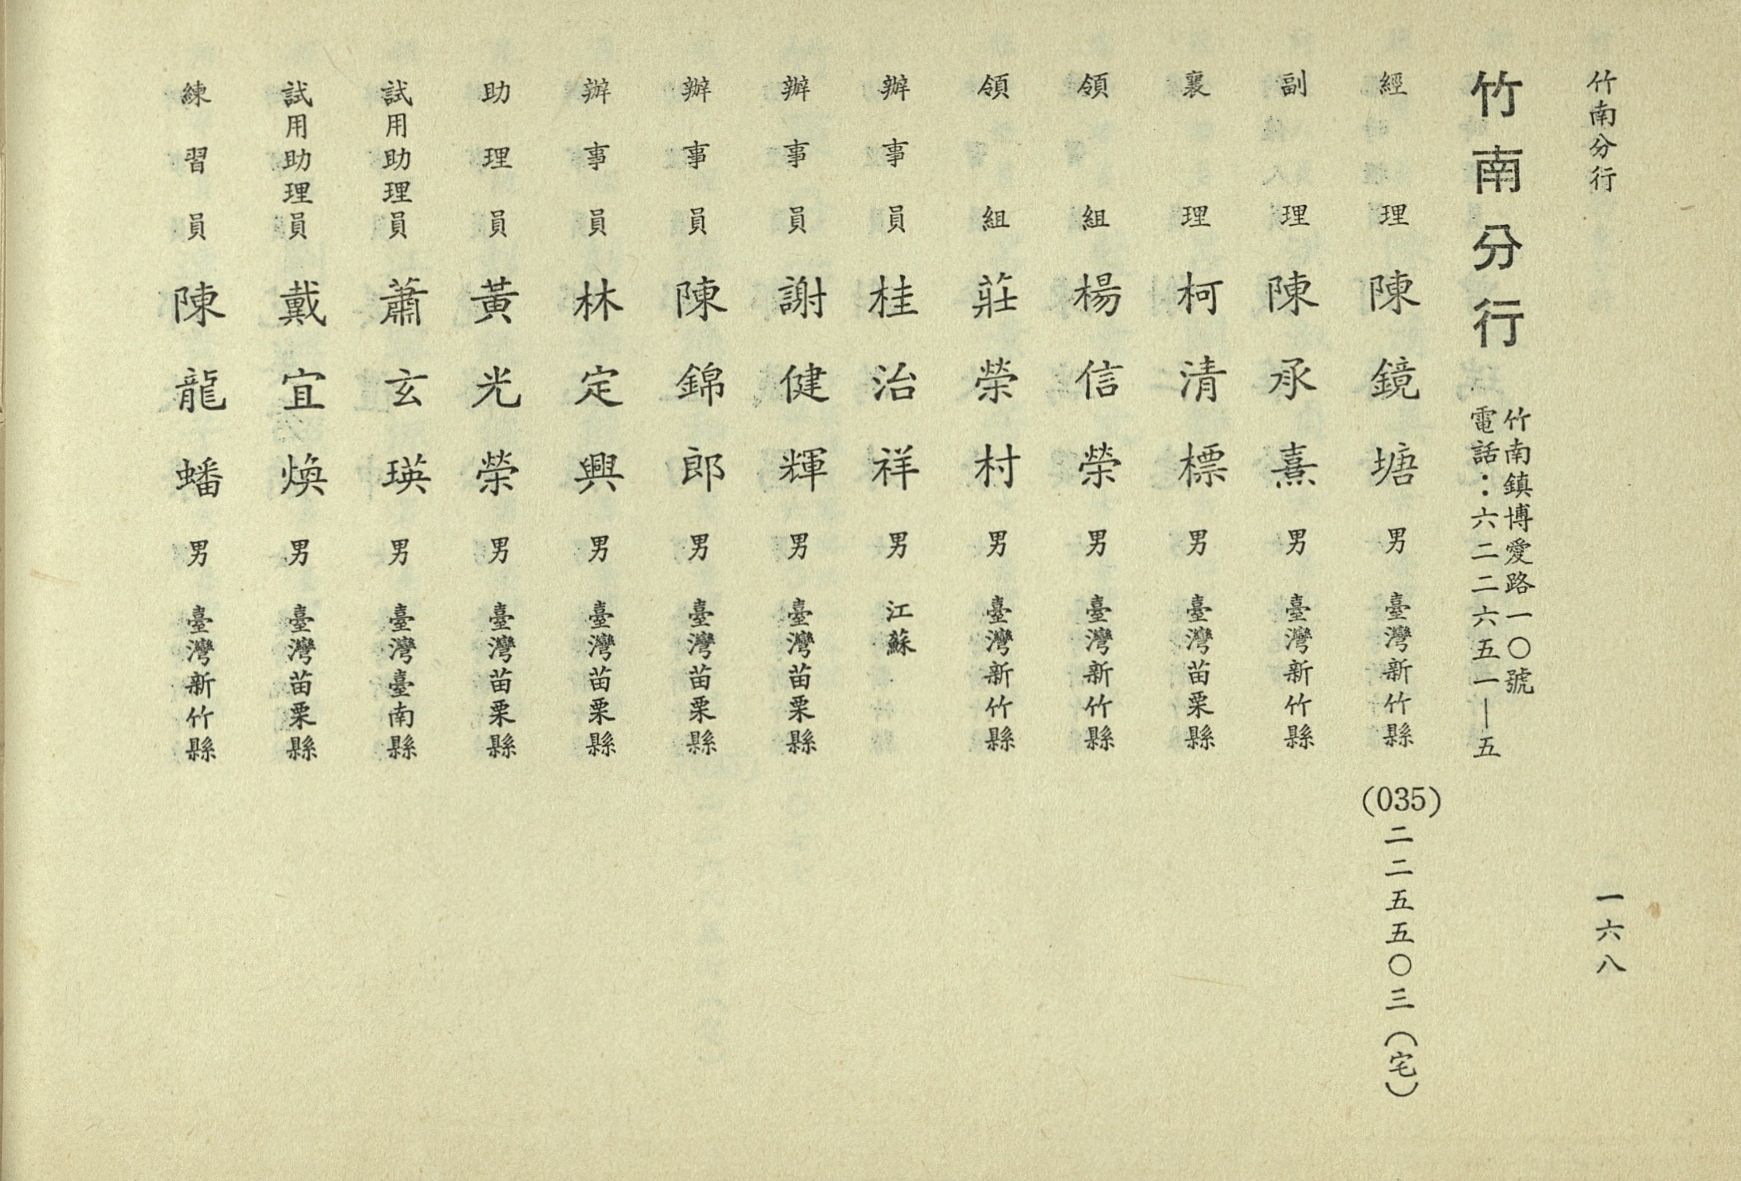 竹南分行
一六八
竹南分行
竹南鎮博愛路一〇號
電話：六二二六五一—五
經理 陳鏡塘 男 臺灣新竹縣 (035)二二五五〇三（宅）
副理 陳承熹 男 臺灣新竹縣
襄理 柯清標 男 臺灣苗栗縣
領組 楊信榮 男 臺灣新竹縣
領組 莊榮村 男 臺灣新竹縣
辦事員 桂治祥 男 江蘇
辦事員 謝健輝 男 臺灣苗栗縣
辦事員 陳錦郎 男 臺灣苗栗縣
辦事員 林定興 男 臺灣苗栗縣
助理員 黃光榮 男 臺灣苗栗縣
試用助理員 蕭玄瑛 男 臺灣臺南縣
試用助理員 戴宜煥 男 臺灣苗栗縣
練習員 陳龍蟠 男 臺灣新竹縣